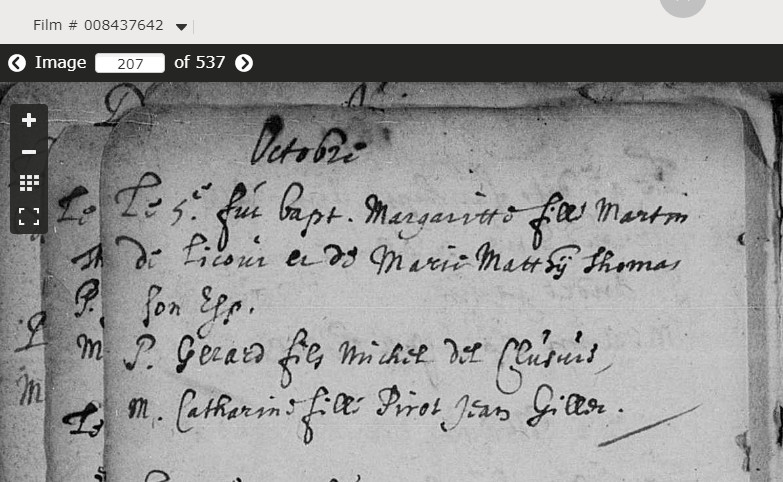 Film # 008437642
Image 207 of 537
Octobre
Le 5.e fut bapt. Margaritte fille Martin
de Licour et de Marie Matthÿ Thomas
son Esp.
P. Gerard fils Michel del
M. Catharine fille Pirot Jean Gilles.